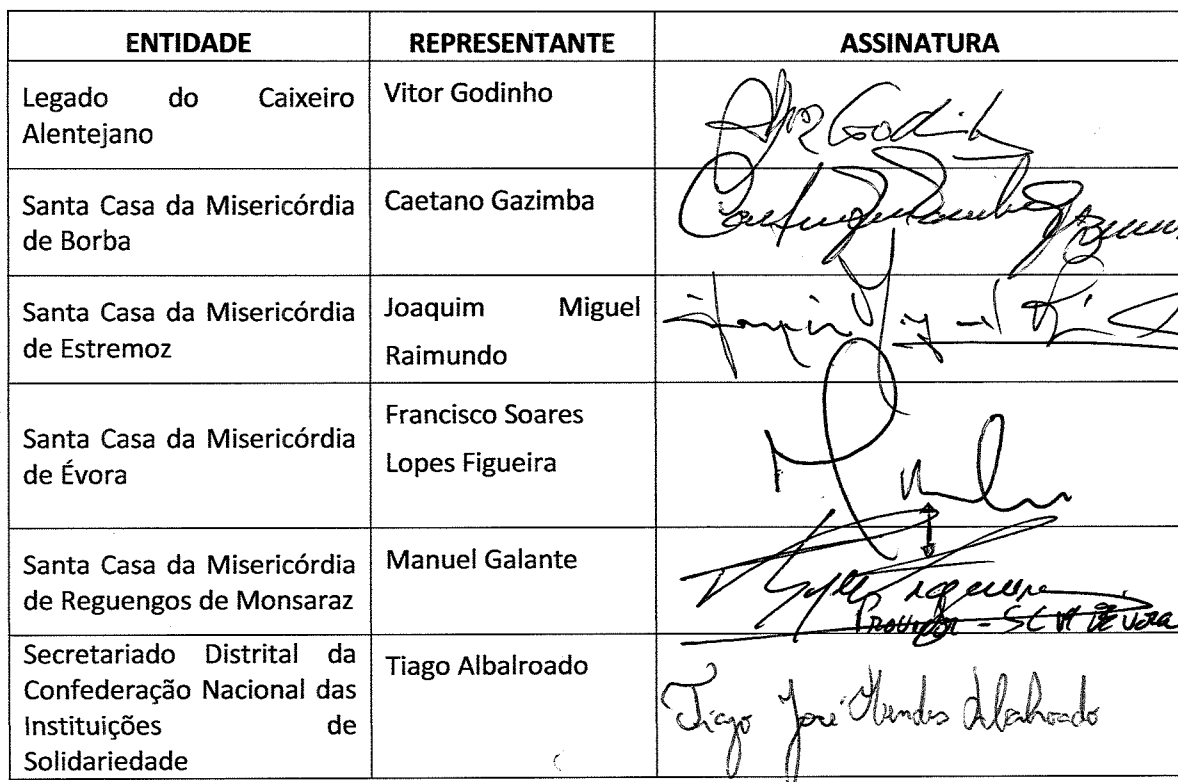 ENTIDADE REPRESENTANTE ASSINATURA
Legado do Caixeiro
Alentejano
Vitor Godinho
Godinho
Santa Casa da Misericórdia
de Borba
Caetano Gazimba
Santa Casa da Misericórdia
de Estremoz
Joaquim Miguel
Raimundo
Santa Casa da Misericórdia
de Évora
Francisco Soares
Lopes Figueira
Santa Casa da Misericórdia
de Reguengos de Monsaraz
Manuel Galante
Figueira
Provedor - SCM DE Évora
Secretariado Distrital da
Confederação Nacional das
Instituições de
Solidariedade
Tiago Albalroado
Tiago José Mendes Albalroado